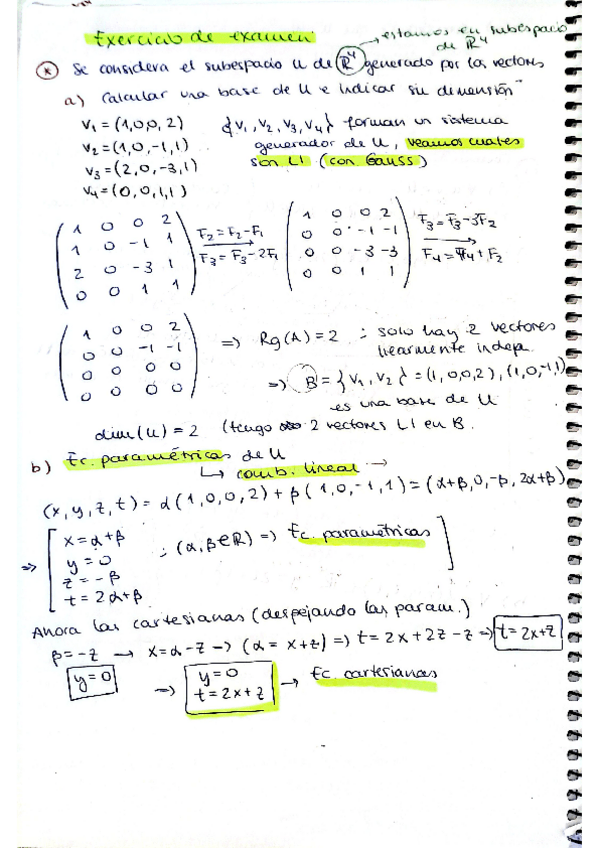 Exercicio de examen
estamos en subespacio
de R⁴
* Se considera el subespacio U de R⁴ generado por los vectores
a) Calcular una base de U e indicar su dimensión
v₁ = (1,0,0,2)
{v₁, v₂, v₃, v₄} forman un sistema
v₂ = (1,0,-1,1)
generador de U, veamos cuales
v₃ = (2,0,-3,1)
son LI (con Gauss)
v₄ = (0,0,1,1)
1 0 0 2
1 0 -1 1
2 0 -3 1
0 0 1 1
F₂ = F₂ - F₁
F₃ = F₃ - 2F₁
1 0 0 2
0 0 -1 -1
0 0 -3 -3
0 0 1 1
F₃ = F₃ - 3F₂
F₄ = F₄ + F₂
1 0 0 2
0 0 -1 -1
0 0 0 0
0 0 0 0
=> Rg(A) = 2 : solo hay 2 vectores
linearmente indep.
=> B = {v₁, v₂} = (1,0,0,2), (1,0,-1,1)
es una base de U
dim(U) = 2 (tengo 2 vectores LI en B.
b) Ec. paramétricas de U
↳ comb. lineal →
(x,y,z,t) = α(1,0,0,2) + β(1,0,-1,1) = (α+β, 0, -β, 2α+β)
=> x = α+β
y = 0
z = -β
t = 2α+β
; (α, β ∈ R) => Ec. paramétricas
Ahora las cartesianas (despejando las param.)
β = -z → x = α - z → (α = x+z) => t = 2x + 2z - z => t = 2x+z
y = 0
=> y = 0
t = 2x + z
→ Ec. cartesianas